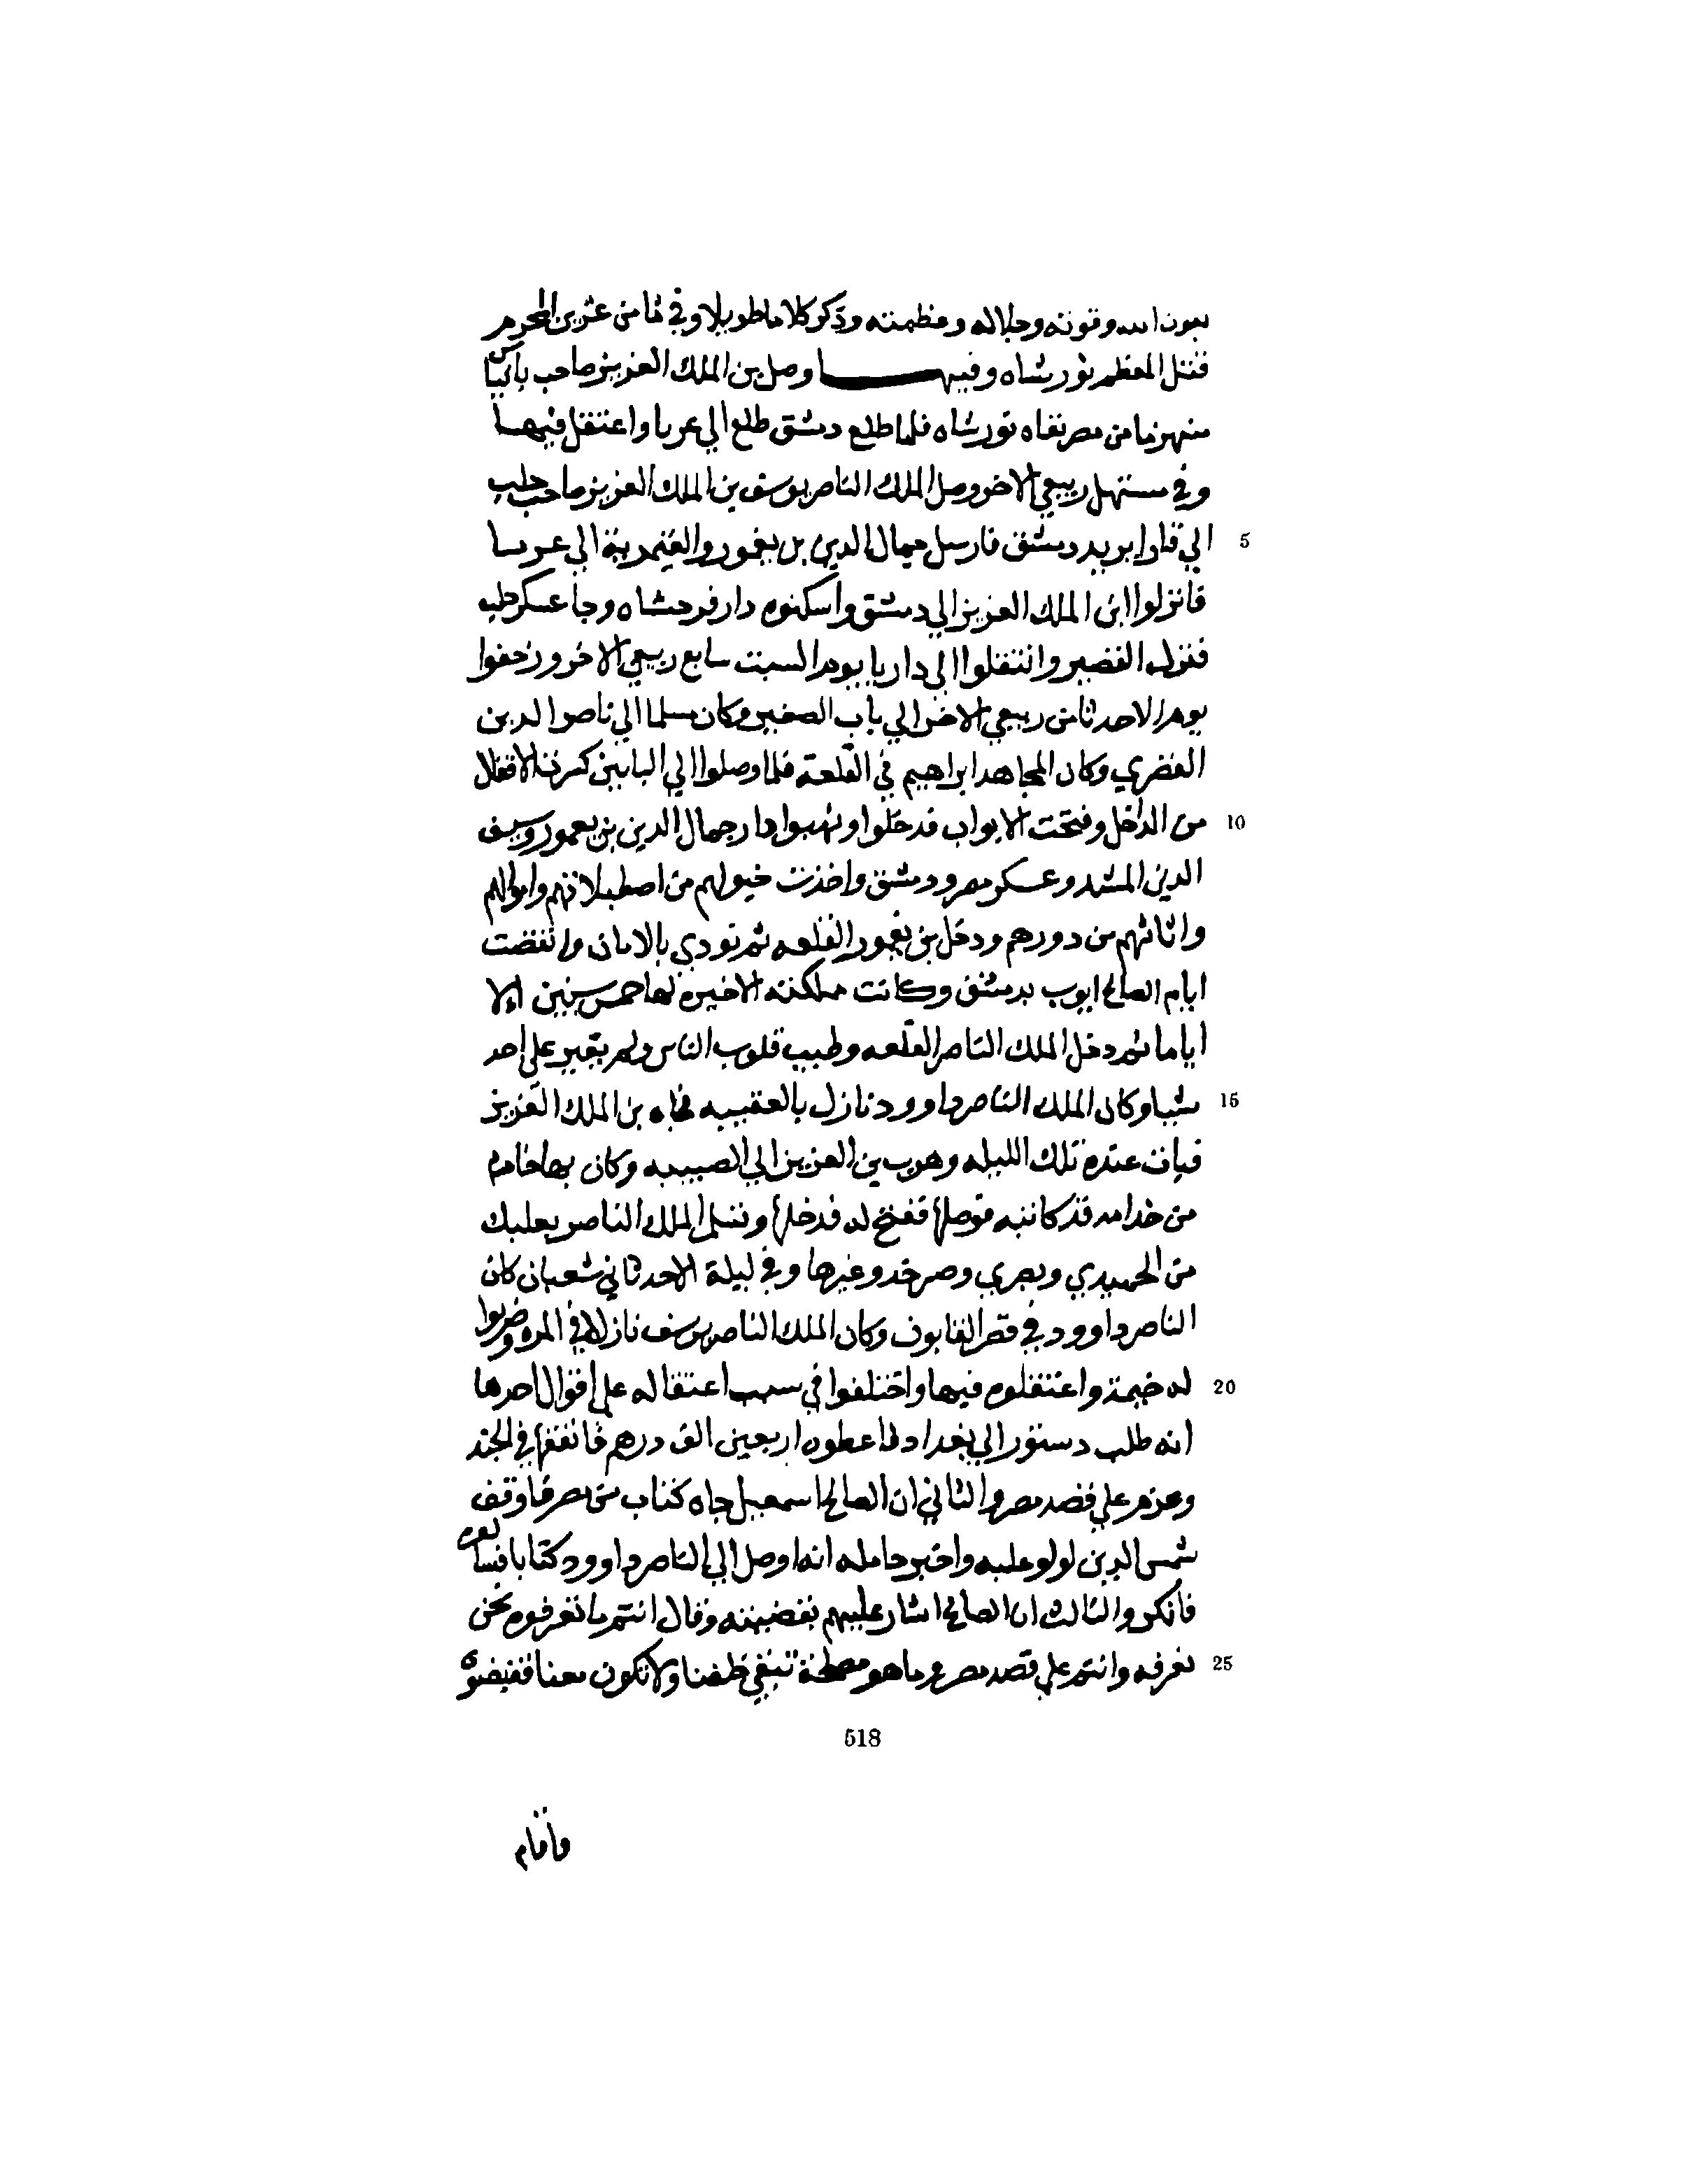 بعون الله وقوته وجلاله وعظمته وذكر كلاما طويلا وفي ثامن عشرين المحرم
قتل المعظم تورنشاه وفيهـــا وصل بن الملك العزيز صاحب بانياس
منهزما من مصر نفاه تورنشاه فلما طلع دمشق طلع الي عزتا واعتقل فيهـا
وفي مستهل ربيع الاخر وصل الملك الناصر يوسف بن الملك العزيز صاحب حلب
الي قارا يريد دمشق فارسل جمال الدين بن يغمور والقيمرية الي عزتـا 5
فانزلوا ابن الملك العزيز الي دمشق واسكنوه دار فرخشاه وجا عسكر حلب
فنزل القصير وانتقلوا الي داريا يوم السبت سابع ربيع الاخر وزحفوا
يوم الاحد ثامن ربيع الاخر الي باب الصغير وكان مسلما الي ناصر الدين
القيمري وكان المجاهد ابراهيم في القلعة فلما وصلوا الي البابين كسرت الاقفال
من الداخل وفتحت الابواب فدخلوا ونهبوا دار جمال الدين بن يغمور وسيف 10
الدين المشد وعسكر مصر ودمشق واخذت خيولهم من اصطبلاتهم واموالهم
واثاثهم من دورهم ودخل بن يغمور القلعه ثم نودي بالامان وانقضت
ايام الصالح ايوب بدمشق وكانت مملكته الاخيرة لها خمس سنين الا
اياما ثم دخل الملك الناصر القلعه وطيب قلوب الناس ولم يغير علي احد
شيا وكان الملك الناصر داوود نازل بالعقيبه فجاه بن الملك العزيز 15
فبات عنده تلك الليله وهرب بن العزيز الي الصبيبه وكان بها خادم
من خدامه قد كاتبه فوصلها ففتح له فدخلها وتسلم الملك الناصر بعلبك
من الحميدي وبصري وصرخد وغيرها وفي ليلة الاحد ثاني شعبان كان
الناصر داوود في قصر القابون وكان الملك الناصر يوسف نازلا في المزه وضربوا
له خيمة واعتقلوه فيها واختلفوا في سبب اعتقاله علي اقوال احدها 20
انه طلب دستور الي بغداد فاعطوه اربعين الف درهم فانفقها في الجند
وعزم علي قصد مصر والثاني ان الصالح اسمعيل جاه كتاب من مصر فاوقف
شمس الدين لولو عليه واخبر حامله انه اوصل الي الناصر داوود كتابا فسالوه
فانكر والثالث ان الصالح اشار عليهم بقبضته وقال انتم ما تعرفوه نحن
نعرفه وانتم علي قصد مصر وما هو مصلحة تبقي خلفنا ولا تكون معنا فقبضوه 25
518
واقام